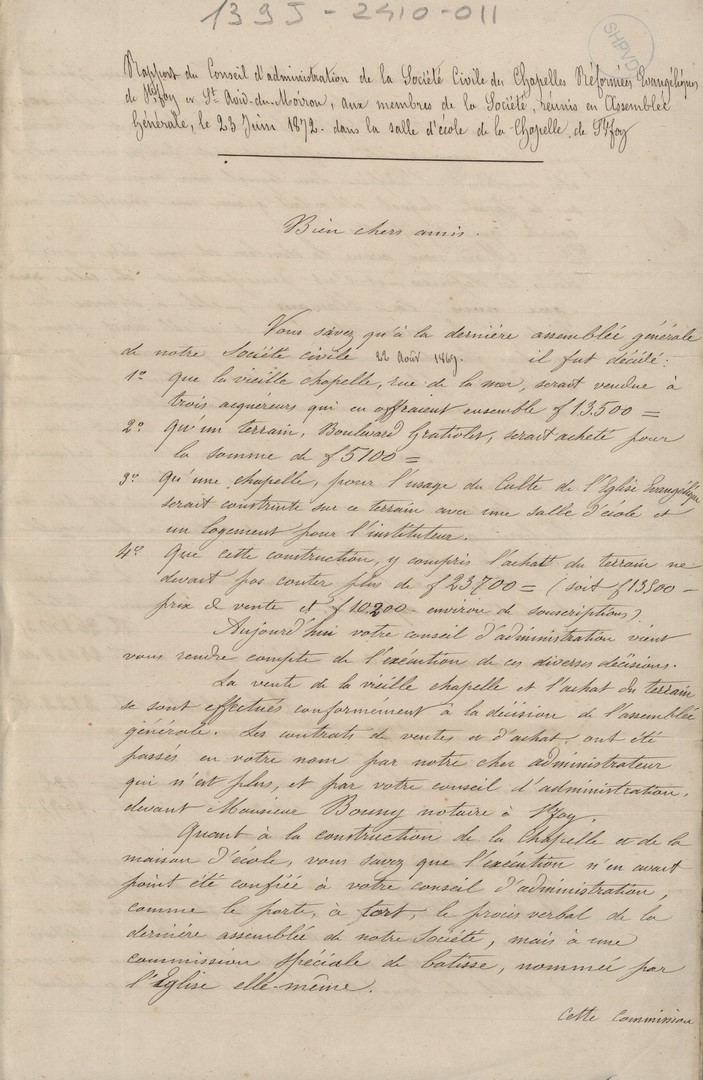 1395-2410-011
SHPVD
Rapport du Conseil d'administration de la Société Civile des Chapelles Réformées Evangéliques
de Ste foy et St Avid-du-Moiron, aux membres de la Société, réunis en Assemblée
Générale, le 23 Juin 1872. dans la salle d'école de la Chapelle de Ste foy
Bien chers amis.
Vous savez qu'à la dernière assemblée générale
de notre Société civile 22 Août 1869. il fut décidé:
1o que la vieille chapelle, rue de la mer, serait vendue à
trois acquéreurs qui en offraient ensemble f 13.500 =
2o Qu'un terrain, Boulevard Gratiolet, serait acheté pour
la somme de f 5100 =
3o Qu'une chapelle, pour l'usage du Culte de l'Eglise Evangélique
serait construite sur ce terrain avec une salle d'école et
un logement pour l'instituteur.
4o Que cette construction, y compris l'achat du terrain ne
devait pas couter plus de f 23,700 = (soit f 13,500 -
prix de vente et f 10.200 - environ de souscriptions)
Aujourd'hui votre conseil d'administration vient
vous rendre compte de l'exécution de ces diverses décisions.
La vente de la vieille chapelle et l'achat du terrain
se sont effectués conformément à la décision de l'assemblée
générale. Les contrats de ventes et d'achat ont été
passés en votre nom par notre cher administrateur
qui n'est plus, et par votre conseil d'administration,
devant Monsieur Bouny notaire à Ste foy.
Quant à la construction de la Chapelle et de la
maison d'école, vous savez que l'exécution n'en avait
point été confiée à votre conseil d'administration,
comme le porte, à tort, le procès verbal de la
dernière assemblée de notre Société, mais à une
commission spéciale de batisse, nommée par
l'Eglise elle-même.
Cette Commission